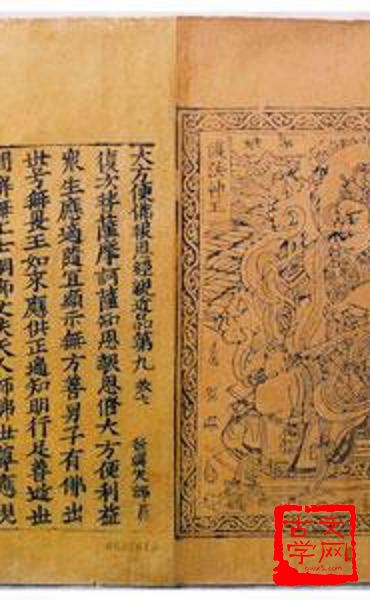 護法神王
大方便佛報恩經親近品第九 卷七
復次菩薩摩訶薩知恩報恩修大方便利益
眾生應適隨宜顯示無方善男子有佛出
世号無王如來應供正遍知明行足善逝世
間解無上士調御丈夫天人師佛世尊應現
古文
学网